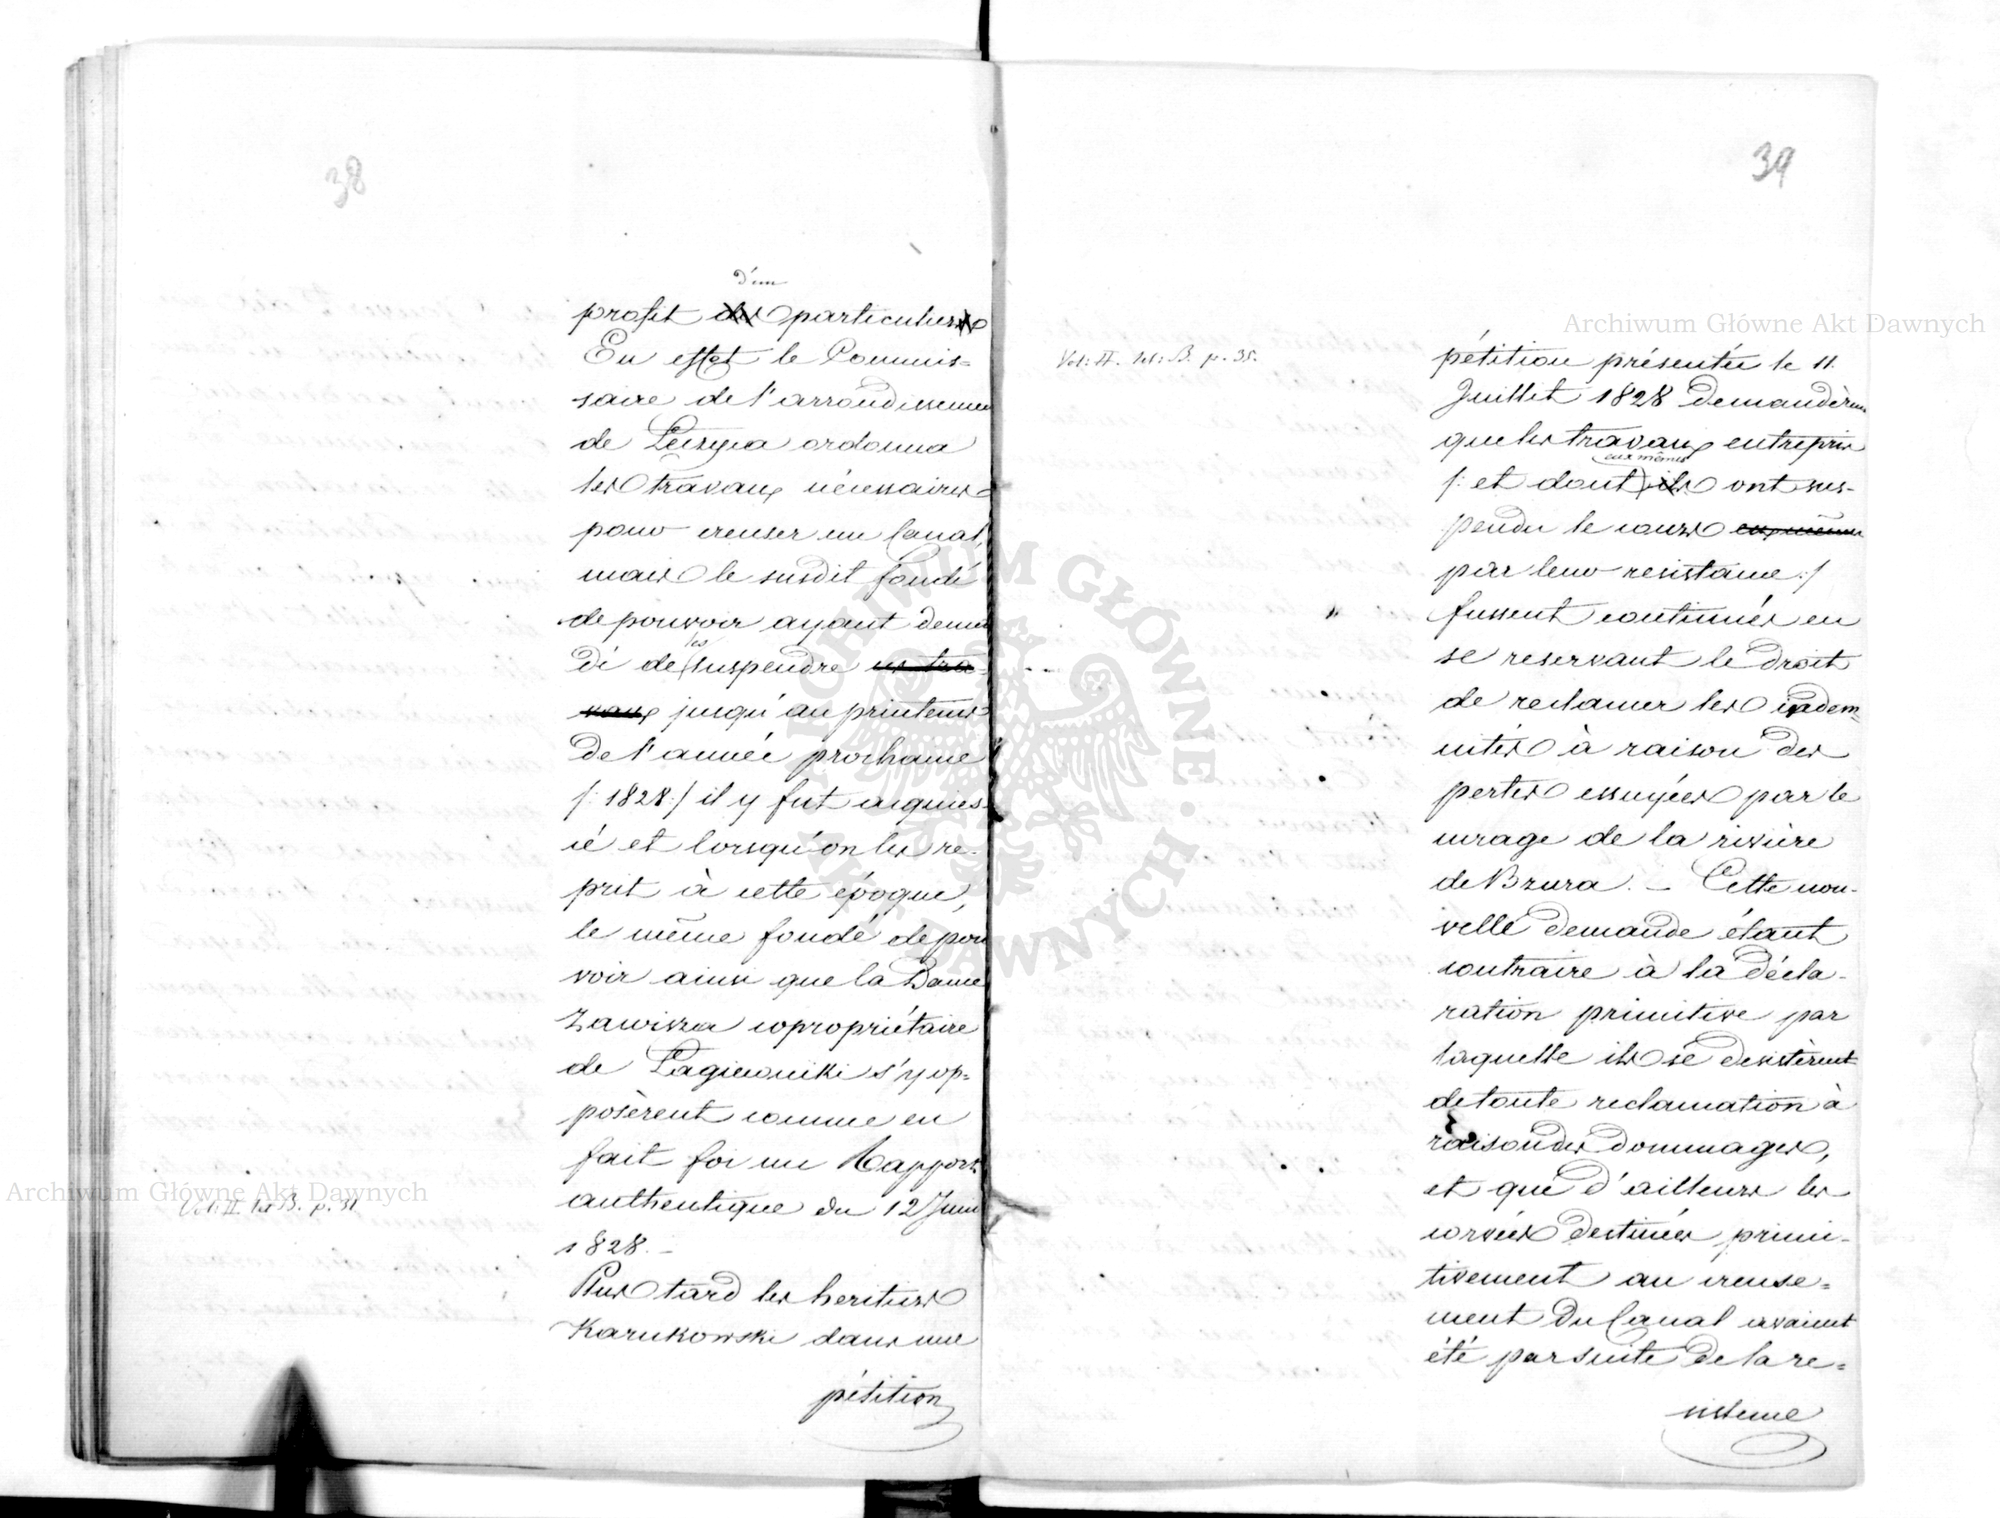 38
d'un
profit des particuliers
En effet le Commis=
saire de l'arrondissemen
de Leczyca ordonna
les travaux nécessaires
pour creuser un Canal,
mais le susdit fondé
de pouvoir ayant deman
dé de les suspendre ces tra-
vaux jusqu'au printems
de l'année prochaine
/: 1828 :/ il y fut acquies-
cé et lorsqu'on les re-
prit à cette époque,
le même fondé de pou
voir ainsi que la Dame
Zawisza copropriétaire
de Lagiewniki s'y op=
posèrent comme en
fait foi un Rapport
authentique du 12 Juin
1828. –
Vol: II. lit: B. p. 31
Plus tard les heritiers
Karnkowski dans une
pétition
39
Vol: II. lit: B. p. 35.
pétition présentée le 11
Juillet 1828 demandèren
que les travaux entrepris
eux mêmes
/: et dont ils ont sus-
pendu le cours eux mêmes
par leur resistance :/
fussent continués en
se reservant le droit
de reclamer les indem-
nités à raison des
pertes essuyées par le
curage de la rivière
de Bzura. – Cette nou-
velle demande étant
contraire à la décla-
ration primitive par
laquelle ils se desistèrent
de toute reclamation à
raison des dommages,
et que d'ailleurs les
corvées destinées primi-
tivement au creuse=
ment du Canal avaient
été par suite de la re=
sistence
Archiwum Główne Akt Dawnych
Archiwum Główne Akt Dawnych
ARCHIWUM GŁÓWNE AKT DAWNYCH